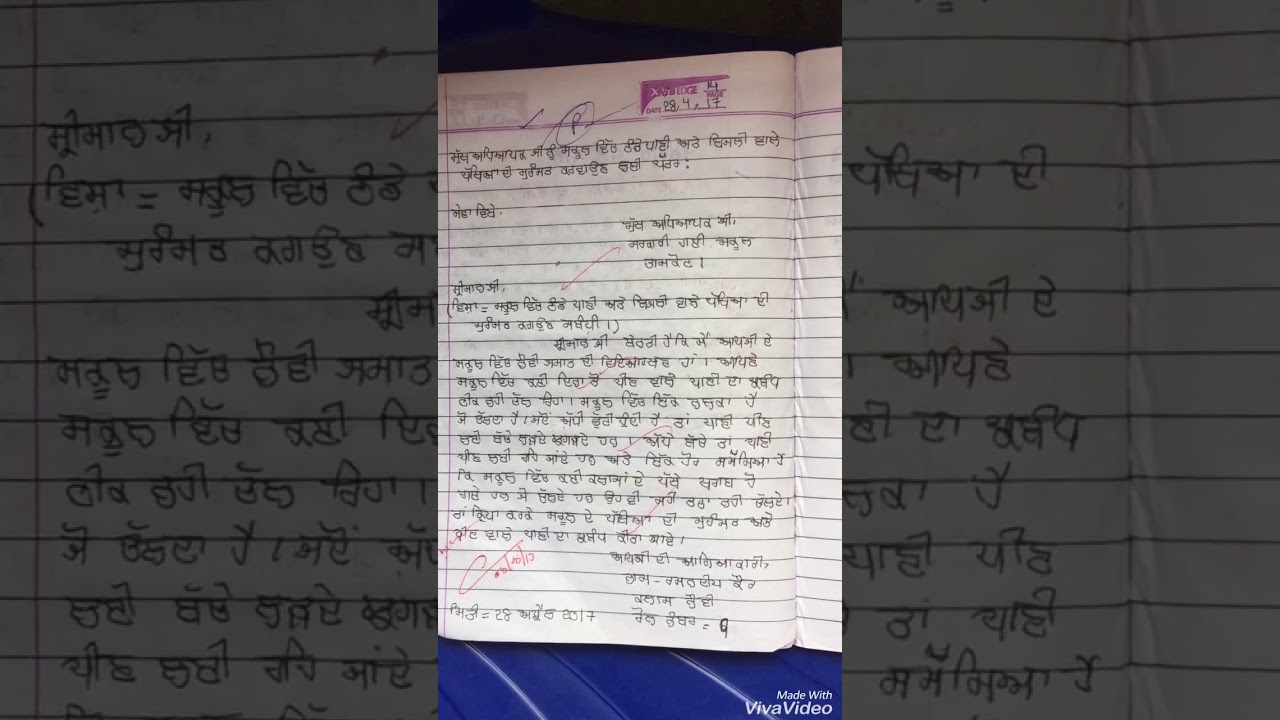 14
DATE 28,4,17
ਮੁੱਖ ਅਧਿਆਪਕ ਜੀ ਨੂੰ ਸਕੂਲ ਵਿੱਚ ਠੰਡੇ ਪਾਣੀ ਅਤੇ ਬਿਜਲੀ ਵਾਲੇ
ਪੱਖਿਆ ਦੀ ਮੁਰੰਮਤ ਕਰਵਾਉਣ ਲਈ ਪੱਤਰ:
ਸੇਵਾ ਵਿਖੇ,
ਮੁੱਖ ਅਧਿਆਪਕ ਜੀ,
ਸਰਕਾਰੀ ਹਾਈ ਸਕੂਲ
ਸ਼੍ਰੀਮਾਨ ਜੀ,
(ਵਿਸ਼ਾ = ਸਕੂਲ ਵਿੱਚ ਠੰਡੇ ਪਾਣੀ ਅਤੇ ਬਿਜਲੀ ਵਾਲੇ ਪੱਖਿਆ ਦੀ
ਮੁਰੰਮਤ ਕਰਾਉਣ ਸਬੰਧੀ।)
ਸ਼੍ਰੀਮਾਨ ਜੀ ਬੇਨਤੀ ਹੈ ਕਿ ਮੈਂ ਆਪਜੀ ਦੇ
ਸਕੂਲ ਵਿੱਚ ਨੌਵੀਂ ਜਮਾਤ ਦੀ ਵਿਦਿਆਰਥਣ ਹਾਂ। ਆਪਣੇ
ਸਕੂਲ ਵਿੱਚ ਕਈ ਦਿਨਾਂ ਤੋਂ ਪੀਣ ਵਾਲੇ ਪਾਣੀ ਦਾ ਪ੍ਰਬੰਧ
ਠੀਕ ਨਹੀਂ ਚੱਲ ਰਿਹਾ। ਸਕੂਲ ਵਿੱਚ ਇੱਕ ਨਲਕਾ ਹੈ
ਜੋ ਚੱਲਦਾ ਹੈ। ਜਦੋਂ ਅੱਧੀ ਛੁੱਟੀ ਹੁੰਦੀ ਹੈ ਤਾਂ ਪਾਣੀ ਪੀਣ
ਲਈ ਬੱਚੇ ਲੜਦੇ ਝਗੜਦੇ ਹਨ। ਅੱਧੇ ਬੱਚੇ ਤਾਂ ਪਾਣੀ
ਪੀਣ ਲਈ ਰਹਿ ਜਾਂਦੇ ਹਨ ਅਤੇ ਇੱਕ ਹੋਰ ਸਮੱਸਿਆ ਹੈ
ਕਿ ਸਕੂਲ ਵਿੱਚ ਕਈ ਕਲਾਸਾਂ ਦੇ ਪੱਖੇ ਖਰਾਬ ਹੋ
ਗਏ ਹਨ ਜੋ ਚੱਲਦੇ ਹਨ ਉਹ ਵੀ ਸਹੀ ਤਰਾਂ ਨਹੀਂ ਚੱਲਦੇ।
ਤਾਂ ਕ੍ਰਿਪਾ ਕਰਕੇ ਸਕੂਲ ਦੇ ਪੱਖਿਆ ਦੀ ਮੁਰੰਮਤ ਅਤੇ
ਪੀਣ ਵਾਲੇ ਪਾਣੀ ਦਾ ਪ੍ਰਬੰਧ ਕੀਤਾ ਜਾਵੇ।
ਆਪਜੀ ਦੀ ਆਗਿਆਕਾਰੀ,
ਨਾਮ - ਰਮਨਦੀਪ ਕੌਰ
ਕਲਾਸ ਨੌਵੀਂ
ਮਿਤੀ = 28 ਅਪ੍ਰੈਲ 2017
ਰੋਲ ਨੰਬਰ = 9
Made With
VivaVideo